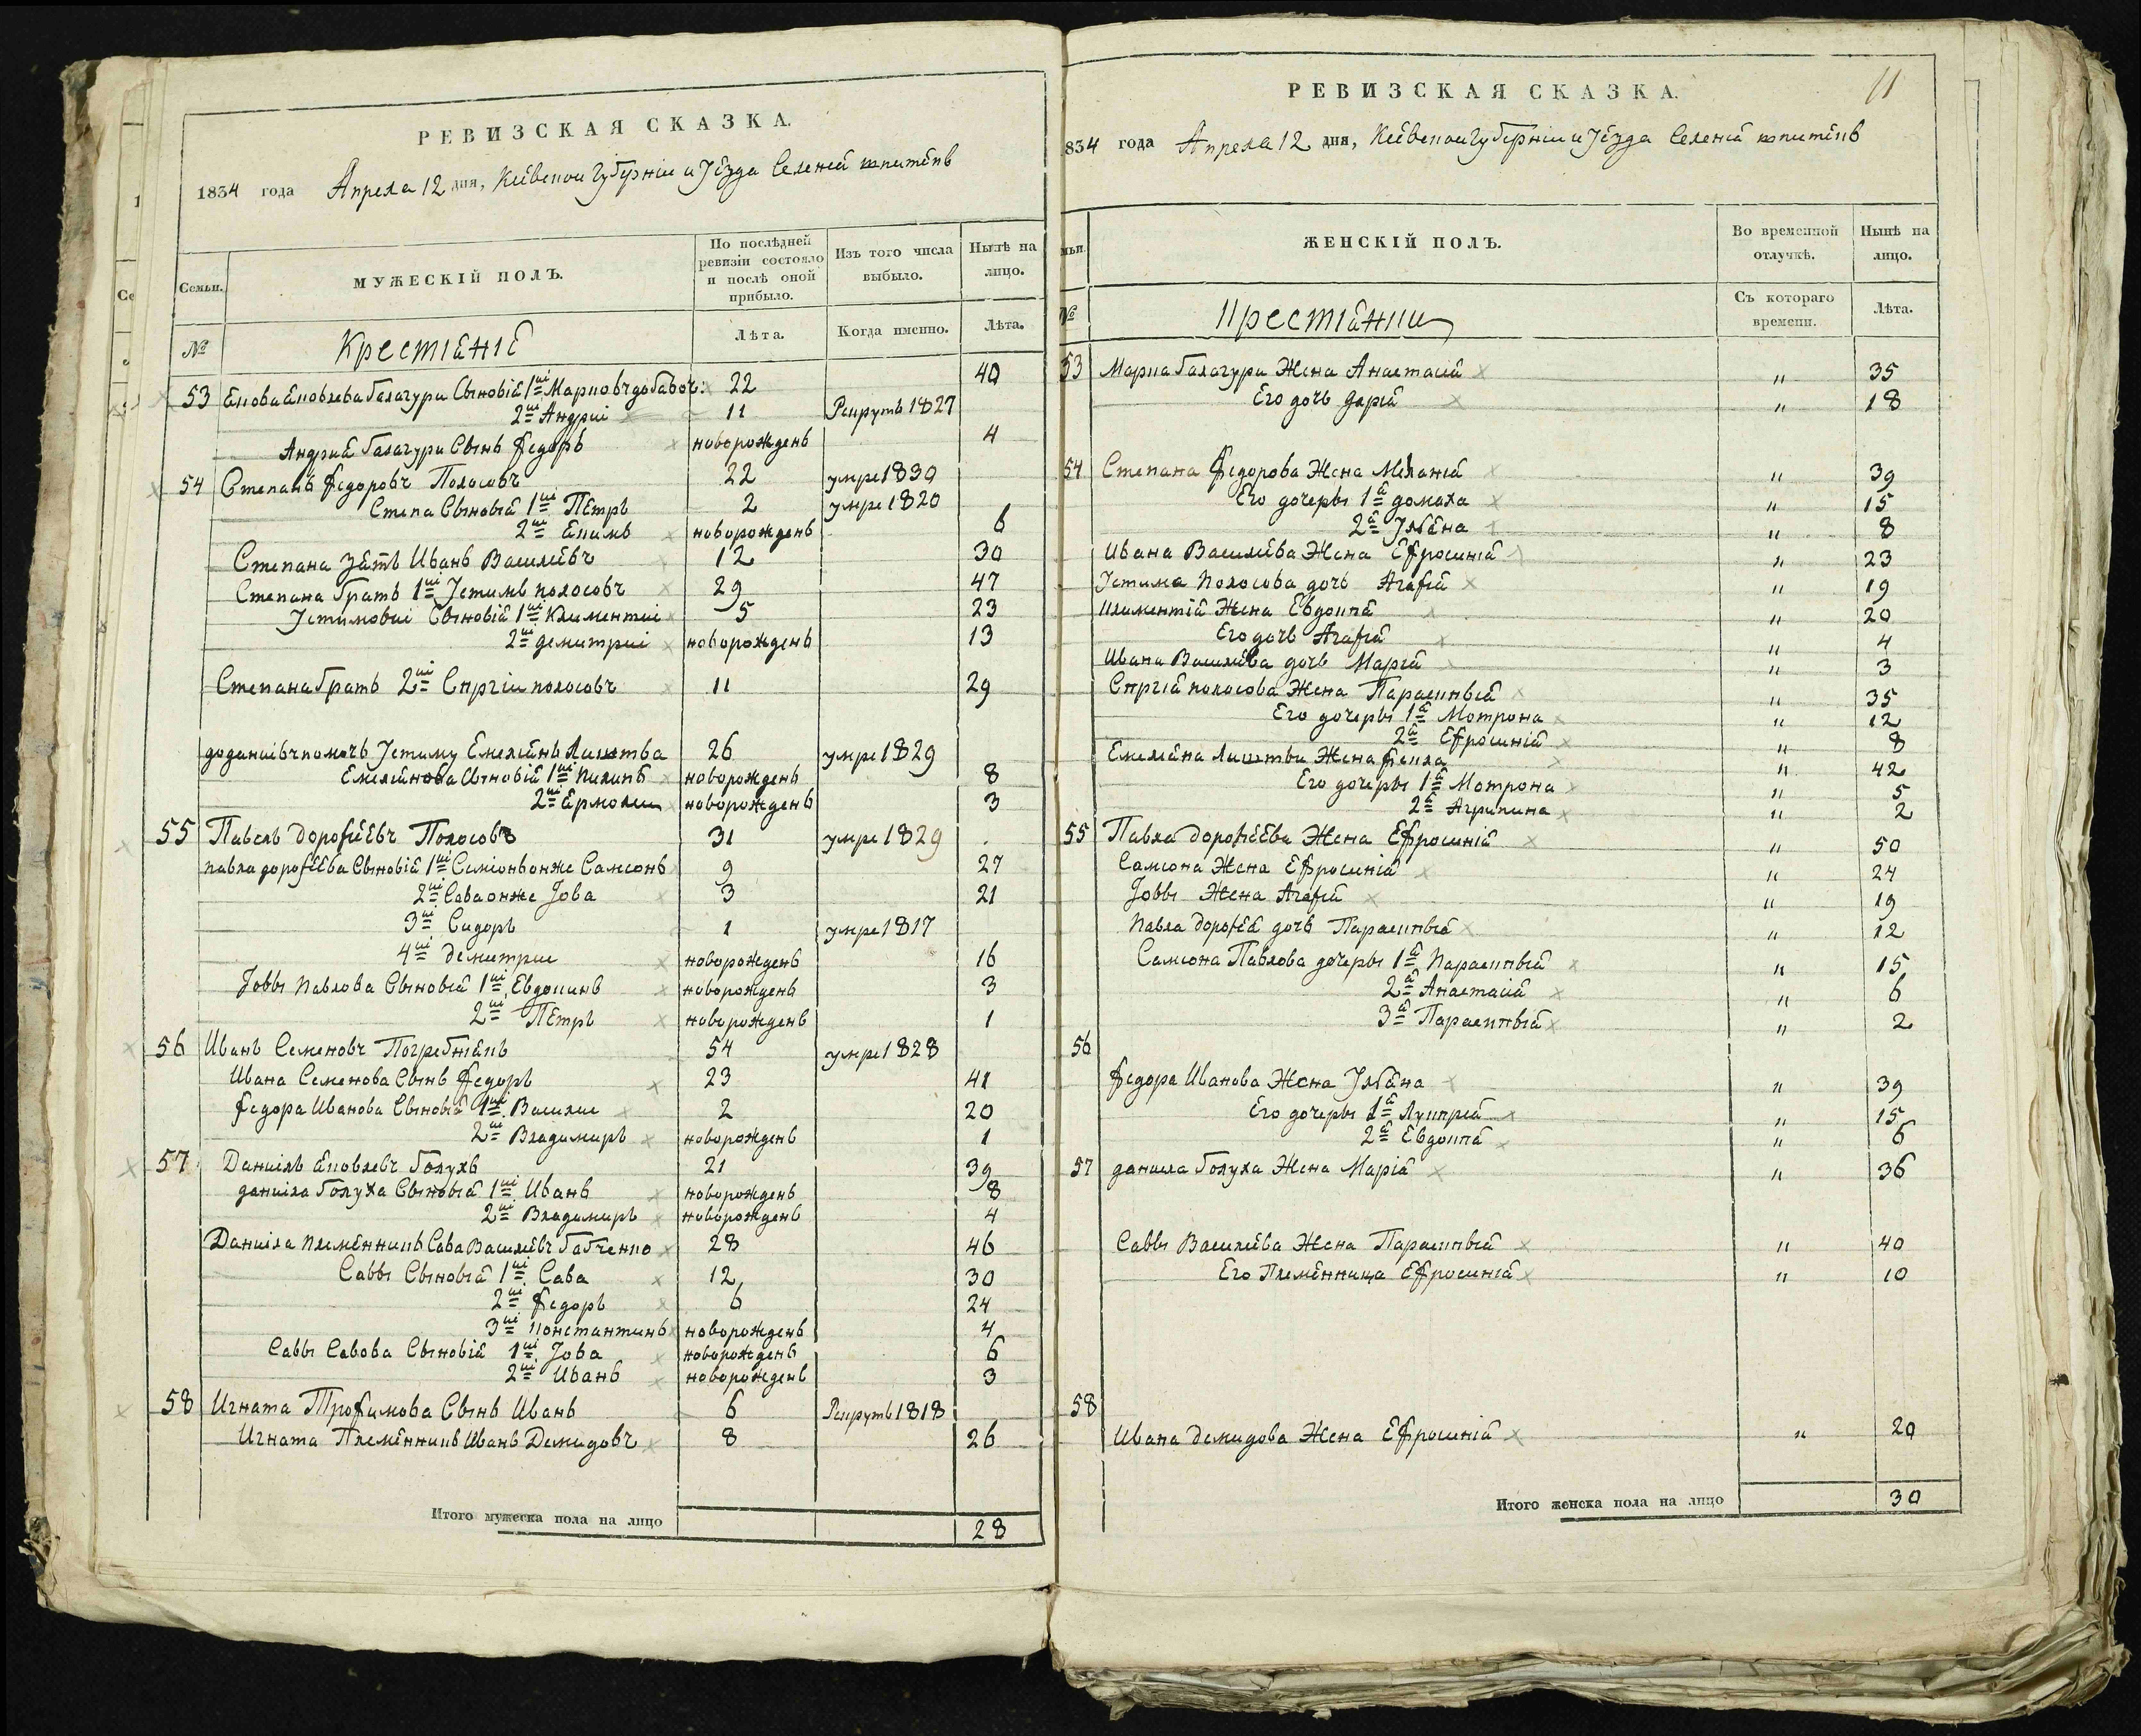 РЕВИЗСКАЯ СКАЗКА.
1834 года Апреля 12 дня, Кіевской Губерніи и Уезда Селенія
Семьи.
МУЖЕСКІЙ ПОЛЪ.
По послѣдней ревизіи состояло и послѣ оной прибыло.
Изъ того числа выбыло.
Нынѣ на лицо.
№
Крестіяне
Лѣта.
Когда именно.
Лѣта.
53 Галагури Сыновія 1й Марко 22 40
2й Андрій 11 Рекрутъ 1827
Андрія Галагури Сынъ Федоръ новорожденъ 4
54 Степанъ Федоровъ Полосовъ 22 умре 1830
Степа Сыновія 1й Петръ 2 умре 1820
2й Екимъ новорожденъ 6
Степана зять Иванъ Василіевъ 12 30
Степана братъ 1й Устимъ полосовъ 29 47
Устимовы Сыновія 1й Климентій 5 23
2й демитрій новорожденъ 13
Степана братъ 2й Сиргій полосовъ 11 29
Устиму Емеліянъ Лиштва 26 умре 1829
Емеліянова Сыновія 1й новорожденъ 8
2й Ермолай новорожденъ 3
55 Павелъ дорофеевъ Полосовъ 31 умре 1829
павла дорофеева Сыновія 1й Симіонъ онже Самсонъ 9 27
2й Сава онже Іова 3 21
3й Сидоръ 1 умре 1817
4й демитрій новорожденъ 16
Іоввы павлова Сыновія 1й Евдокимъ новорожденъ 3
2й Петръ новорожденъ 1
56 Иванъ Семеновъ Погребнякъ 54 умре 1828
Ивана Семенова Сынъ Федоръ 23 41
Федора Иванова Сыновія 1й Василій 2 20
2й Владимиръ новорожденъ 1
57 Даніилъ Яковлевъ Голухъ 21 39
даніила Голуха Сыновія 1й Иванъ новорожденъ 8
2й Владимиръ новорожденъ 4
Даніила племенникъ Сава Василіевъ Бабченко 28 46
Саввы Сыновія 1й Сава 12 30
2й Федоръ 6 24
3й константинъ новорожденъ 4
Саввы Савова Сыновія 1й Іова новорожденъ 6
2й Иванъ новорожденъ 3
58 Игната Трофимова Сынъ Иванъ 6 Рекрутъ 1818
Игната Племенникъ Иванъ Демидовъ 8 26
Итого мужеска пола на лицо 28
РЕВИЗСКАЯ СКАЗКА.
11
834 года Апреля 12 дня, Кіевской Губерніи и Уезда Селенія
мьи.
ЖЕНСКІЙ ПОЛЪ.
Во временной отлучкѣ.
Нынѣ на лицо.
№
Крестіянки
Съ котораго времени.
Лѣта.
53 Марка Галагури Жена Анастасія " 35
Его дочь дарія " 18
54 Степана Федорова Жена Меланія " 39
Его дочеры 1я домаха " 15
2я Уляна " 8
Ивана Василіева Жена Ефросинія " 23
Устима полосова дочь Агафія " 19
климентія Жена Евдокія " 20
Его дочь Агафія " 4
Ивана Василіева дочь Марія " 3
Сиргія полосова Жена Параскивія " 35
Его дочеры 1я Мотрона " 12
2я Ефросинія " 8
Емеліяна Лиштви Жена Фекла " 42
Его дочеры 1я Мотрона " 5
2я Агрипина " 2
55 Павла дорофеева Жена Ефросинія " 50
Самсона Жена Ефросинія " 24
Іоввы Жена Агафія " 19
павла дорофея дочь Параскивія " 12
Самсона Павлова дочеры 1я параскивія " 15
2я Анастасія " 6
3я Параскивія " 2
56
Федора Иванова Жена Уляна " 39
Его дочеры 1я Лукирія " 15
2я Евдокія " 6
57 даніила Голуха Жена Марія " 36
Саввы Василіева Жена Параскивія " 40
Его Племенница Ефросинія " 10
58
Ивана демидова Жена Ефросинія " 20
Итого женска пола на лицо 30